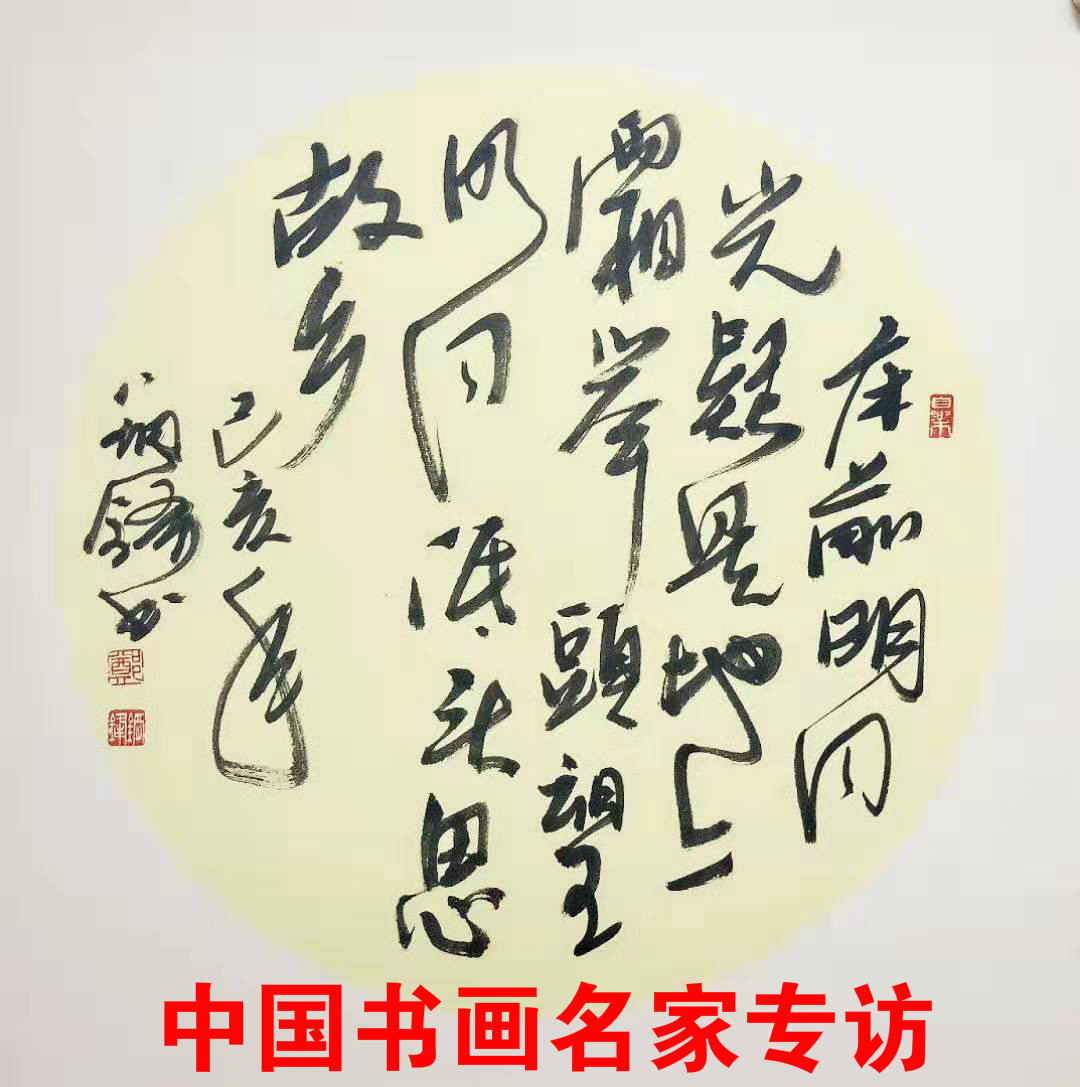 床前明月
光疑是地上
霜举頭望
明月低头思
故乡
己亥年
书
鄭
中国书画名家专访